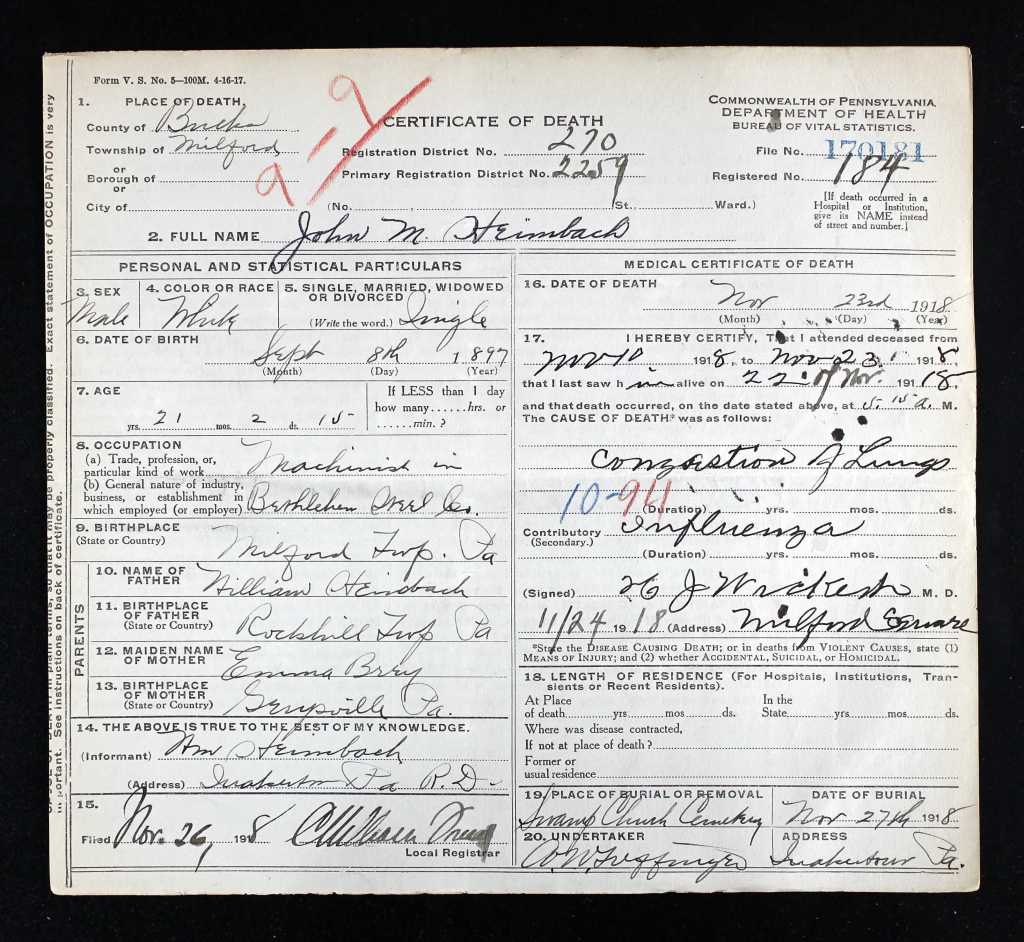 Form V. S. No. 5—100M. 4-16-17.
1. PLACE OF DEATH.
County of Bucks
Township of Milford
or
Borough of
or
City of (No. St. Ward.)
9-9
CERTIFICATE OF DEATH
Registration District No. 270
Primary Registration District No. 2259
COMMONWEALTH OF PENNSYLVANIA.
DEPARTMENT OF HEALTH
BUREAU OF VITAL STATISTICS.
File No. 170181
Registered No. 184
[If death occurred in a
Hospital or Institution,
give its NAME instead
of street and number.]
2. FULL NAME John M. Heimbach
PERSONAL AND STATISTICAL PARTICULARS
3. SEX
Male
4. COLOR OR RACE
White
5. SINGLE, MARRIED, WIDOWED
OR DIVORCED
(Write the word.) Single
6. DATE OF BIRTH
Sept 8th 1897
(Month) (Day) (Year)
7. AGE
yrs. 21 mos. 2 ds. 15
If LESS than 1 day
how many......hrs. or
......min.?
8. OCCUPATION
(a) Trade, profession, or,
particular kind of work Machinist in
(b) General nature of industry,
business, or establishment in
which employed (or employer) Bethlehem Steel Co.
9. BIRTHPLACE
(State or Country)
Milford Twp. Pa
PARENTS
10. NAME OF
FATHER
William Heimbach
11. BIRTHPLACE
OF FATHER
(State or Country)
Rockhill Twp Pa
12. MAIDEN NAME
OF MOTHER
Emma
13. BIRTHPLACE
OF MOTHER
(State or Country)
Geryville Pa.
14. THE ABOVE IS TRUE TO THE BEST OF MY KNOWLEDGE.
(Informant) Wm Heimbach
(Address) Quakertown Pa R.D.
15.
Filed Nov. 26, 1918
Local Registrar
MEDICAL CERTIFICATE OF DEATH
16. DATE OF DEATH
Nov 23rd 1918
(Month) (Day) (Year)
17. I HEREBY CERTIFY, That I attended deceased from
Nov 10 1918, to Nov 23 1918.
that I last saw him alive on 22 of Nov. 1918
and that death occurred, on the date stated above, at 5.15 a. M.
The CAUSE OF DEATH* was as follows:
Congestion of Lungs
10-94
(Duration) yrs. mos. ds.
Contributory Influenza
(Secondary.)
(Duration) yrs. mos. ds.
(Signed) M. D.
11/24 1918 (Address) Milford Square
*State the DISEASE CAUSING DEATH; or in deaths from VIOLENT CAUSES, state (1)
MEANS OF INJURY; and (2) whether ACCIDENTAL, SUICIDAL, or HOMICIDAL.
18. LENGTH OF RESIDENCE (For Hospitals, Institutions, Tran-
sients or Recent Residents).
At Place In the
of death yrs. mos. ds. State yrs. mos. ds.
Where was disease contracted,
If not at place of death?
Former or
usual residence
19. PLACE OF BURIAL OR REMOVAL
Swamp Church Cemetery
DATE OF BURIAL
Nov 27th 1918
20. UNDERTAKER
ADDRESS
Quakertown Pa.
important. See instructions on back of certificate.
in plain terms, so that it may be properly classified. Exact statement of OCCUPATION is very